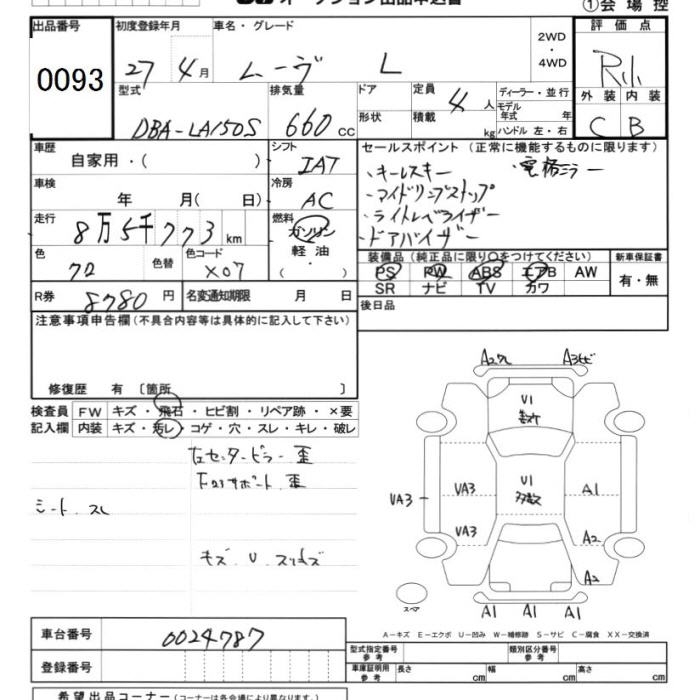 ①会場控
出品番号 初度登録年月 車名・グレード 評価点
0093 27年4月 ムーヴ L 2WD・4WD R小
型式 排気量 ドア 定員 ディーラー・並行 外装 内装
DBA-LA150S 660cc 形状 積載 4人 kg モデル年式 年 ハンドル 左・右 C B
車歴 自家用・( ) シフト IAT セールスポイント (正常に機能するものに限ります)
・キーレスキー ・電格ミラー
車検 年 月(日) 冷房 AC ・アイドリングストップ
・ライトレベライザー
走行 8万5千773km 燃料 ガソリン・軽油・( ) ・ドアバイザー
色 色替 色コード X07 装備品(純正品に限り○をつけてください) 新車保証書
PS PW ABS エアB AW 有・無
SR ナビ TV カワ
R券 8780円 名変通知期限 月 日 後日品
注意事項申告欄(不具合内容等は具体的に記入して下さい)
修復歴 有〔箇所 〕
検査員 FW キズ・飛石・ヒビ割・リペア跡・×要
記入欄 内装 キズ・汚レ・コゲ・穴・スレ・キレ・破レ
左センターピラー歪
シート、スレ
キズ U スリキズ
A3 U1
VA3 VA3 U1 多数 A1
VA3 A2
A2
スペア A1 A1 A1
A-キズ E-エクボ U-凹み W-補修跡 S-サビ C-腐食 XX-交換済
車台番号 0024787
登録番号
型式指定番号 参考 類別区分番号 参考
車庫証明用 参考 長さ cm 幅 cm 高さ cm
希望出品コーナー(コーナーは各会場により異なります)